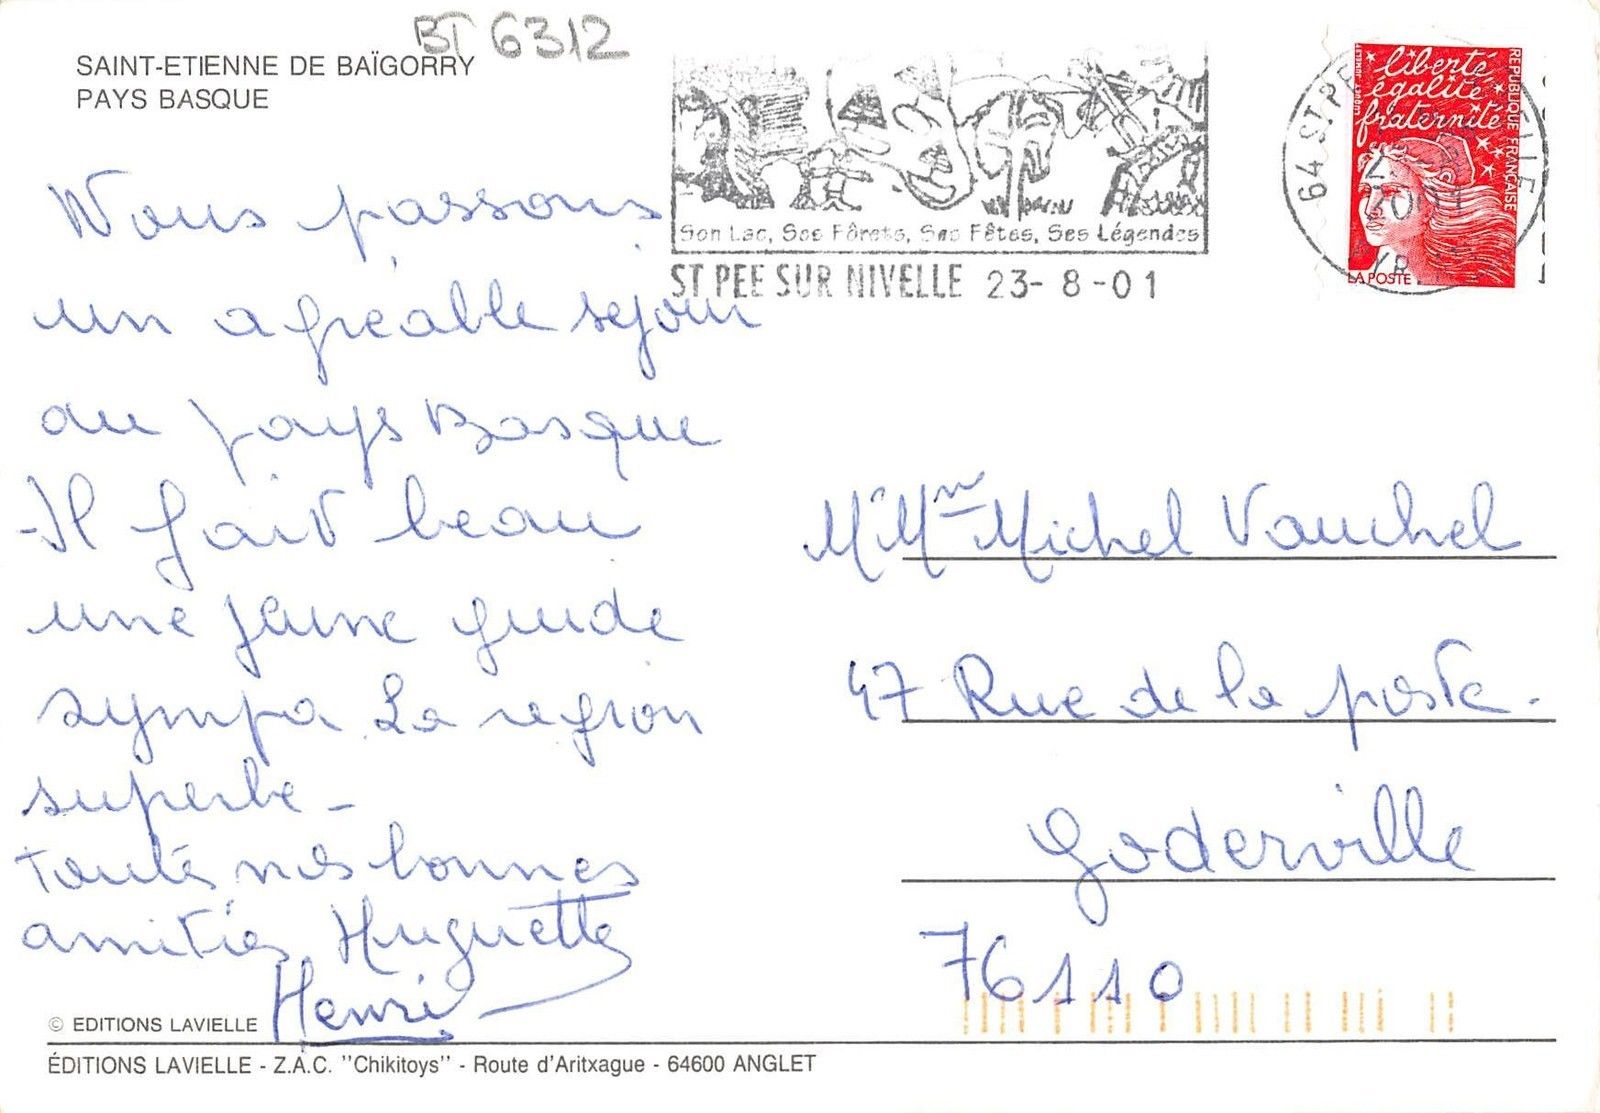 BT 6312
SAINT-ETIENNE DE BAÏGORRY
PAYS BASQUE
Nous passons
un agréable séjour
au pays Basque
-Il fait beau
une jeune guide
sympa La region
superbe -
toutes nos bonnes
amitiés Huguette
Henri
Son Lac, Ses Fôrets, Ses Fêtes, Ses Légendes
ST PEE SUR NIVELLE 23- 8 -01
64 ST PE
2001
liberté
égalité
fraternité
REPUBLIQUE FRANÇAISE
LA POSTE
M Mme Michel Vauchel
47 Rue de la poste.
Goderville
76110
© EDITIONS LAVIELLE
ÉDITIONS LAVIELLE - Z.A.C. "Chikitoys" - Route d'Aritxague - 64600 ANGLET